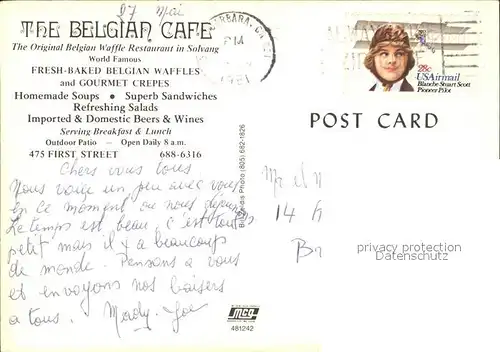 27 Mai
THE BELGIAN CAFE
The Original Belgian Waffle Restaurant in Solvang
World Famous
FRESH-BAKED BELGIAN WAFFLES
and GOURMET CREPES
Homemade Soups • Superb Sandwiches
Refreshing Salads
Imported & Domestic Beers & Wines
Serving Breakfast & Lunch
Outdoor Patio — Open Daily 8 a.m.
475 FIRST STREET 688-6316
BARBARA, CA
PM
1981
28c
USAirmail
Blanche Stuart Scott
Pioneer Pilot
POST CARD
Photo (805) 682-1826
Chers vous tous
Nous voici un peu avec vous
en ce moment ou nous déjeunons
Le temps est beau, c'est tout
petit mais il y a beaucoup
de monde. Pensons à vous
et envoyons nos baisers
a tous. Mady. Joe
mca
481242
Mr et M
14
B
privacy protection
Datenschutz